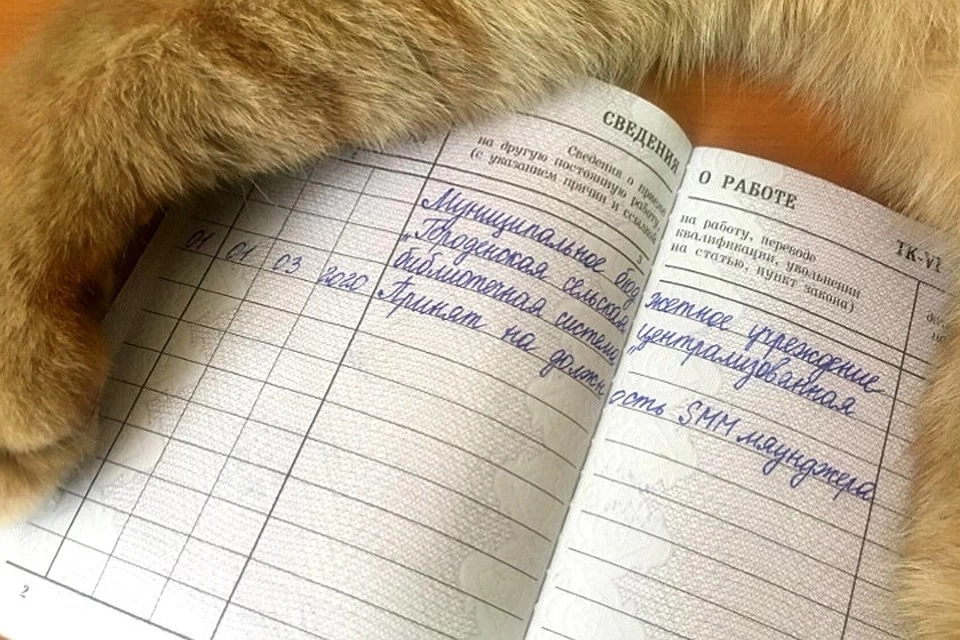 СВЕДЕНИЯ О РАБОТЕ
ТК-VI
Сведения о приеме на работу, переводе
на другую постоянную работу, квалификации, увольнении
(с указанием причин и ссылкой на статью, пункт закона)
3
Муниципальное бюджетное учреждение
„Городенская сельская „централизованная
библиотечная система
01 01 03 2020 Принят на должность SMM мяунджера
2